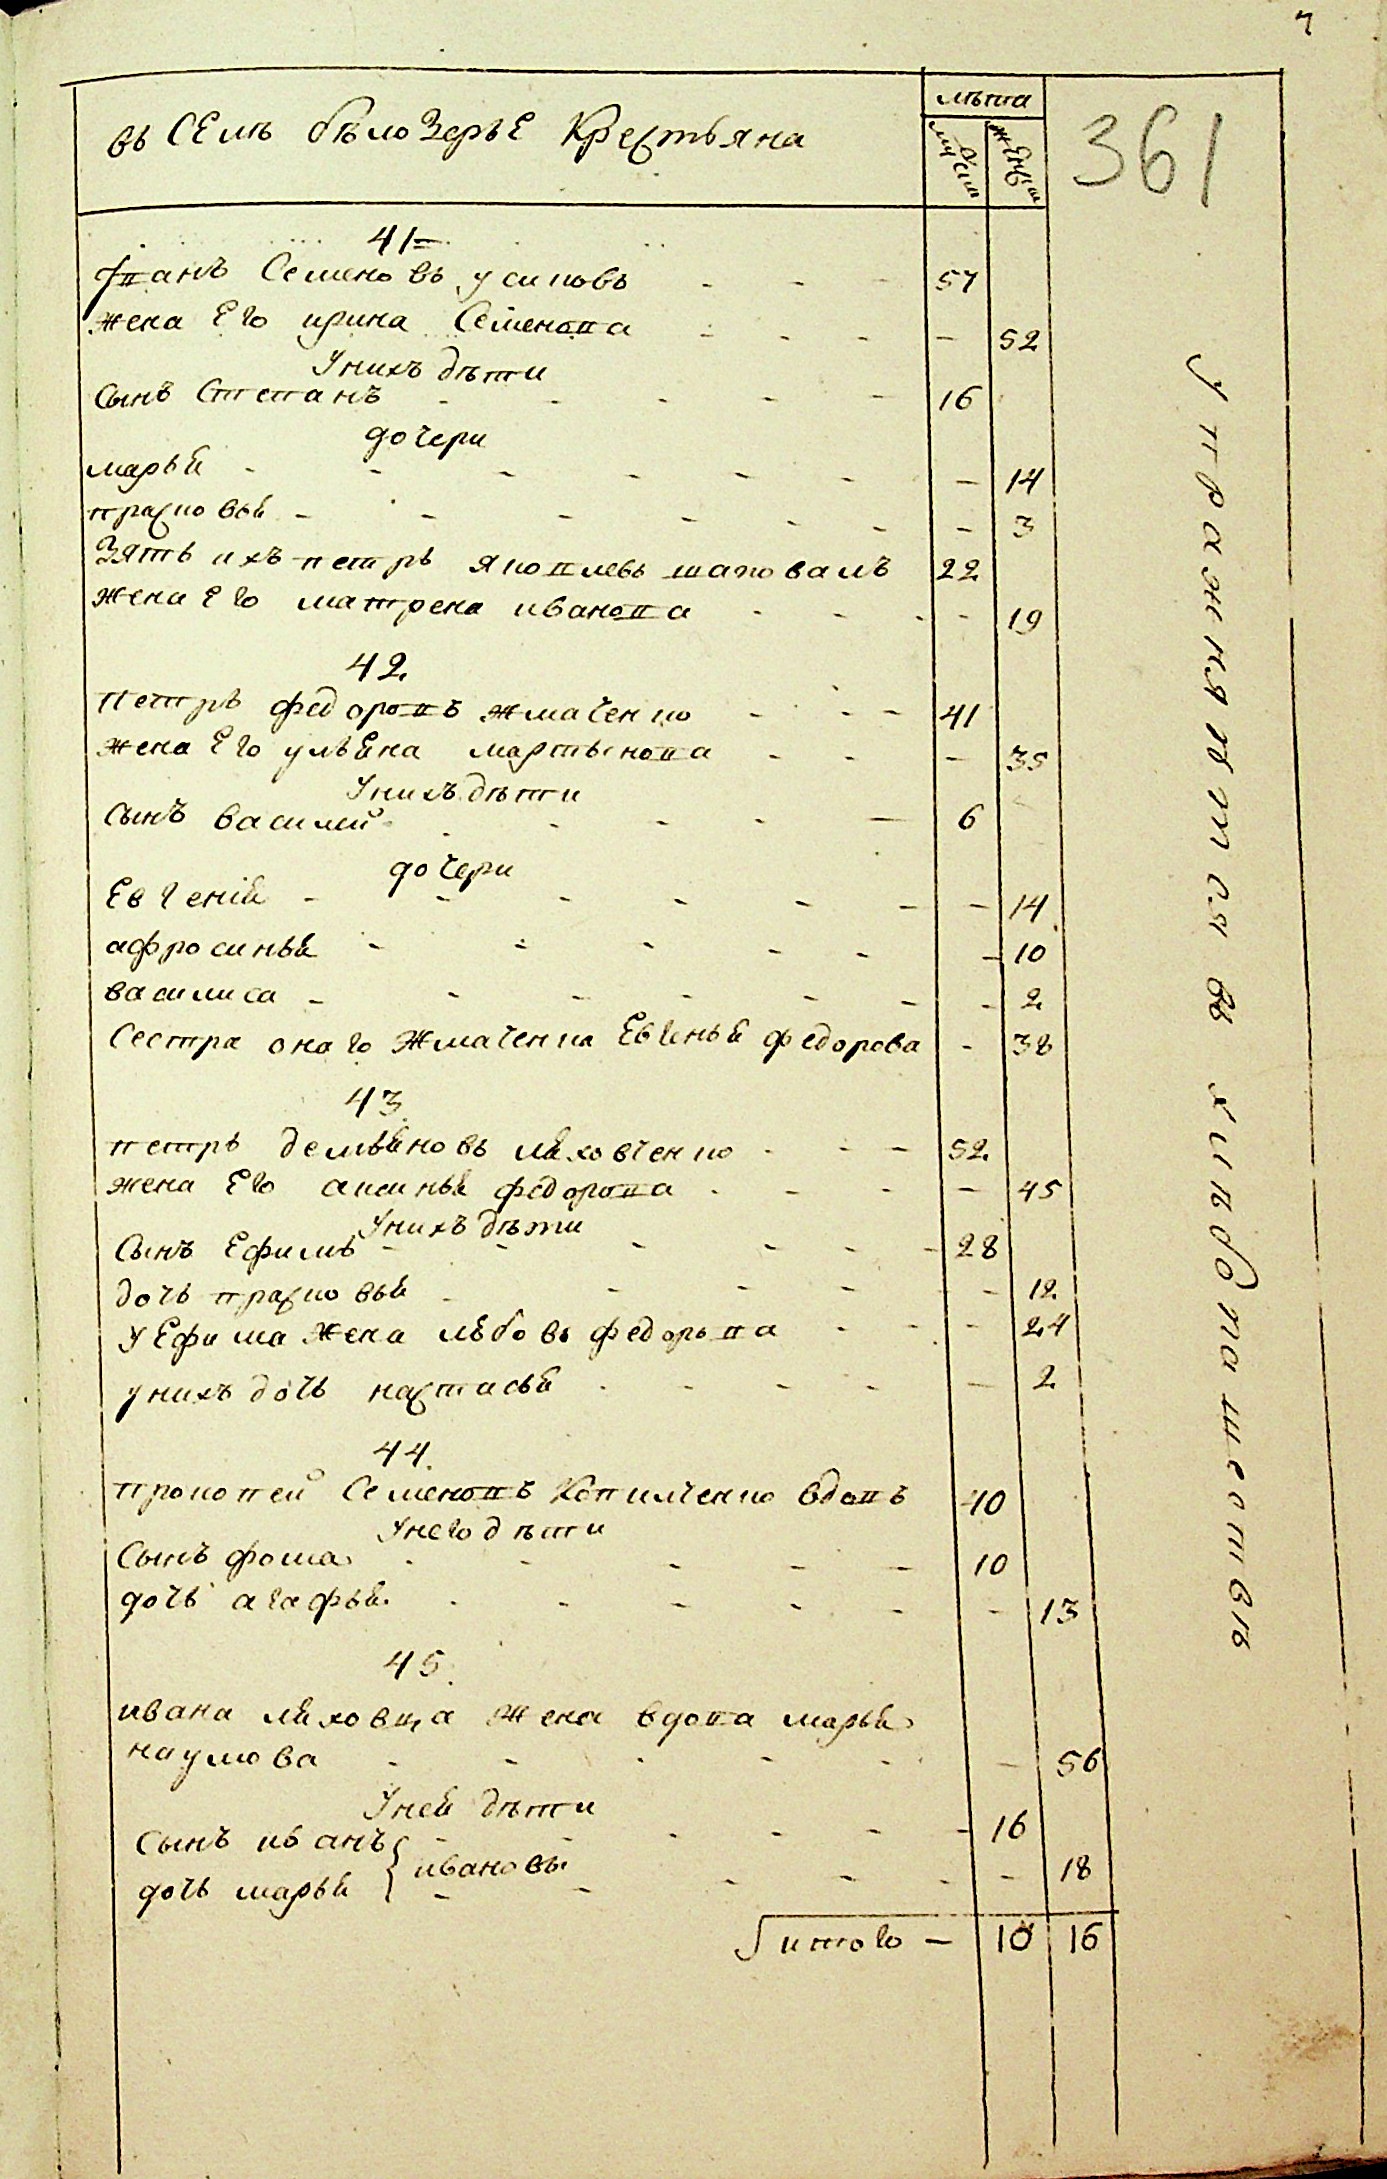 въ СЕлѣ бѣлоЗерьЕ Крестьяна
лѣта
муж
жен
361
41
Іванъ Семеновъ усиковъ - - - 57
жена Его ирина Семенова - - - - 52
Унихъ дѣти
Сынъ Степанъ - - - - - 16
дочери
марья - - - - - - - 14
прасковья - - - - - - - 3
Зять ихъ петръ яковлевъ шаповалъ 22
жена Его матрена иванова - - - - 19
42.
петръ федоровъ жмаченко - - - - 41
жена Его ульяна мартынова - - - 35
Унихъ дѣти
Сынъ василий - - - - - 6
дочери
Евгения - - - - - - - 14
афросинья - - - - - - 10
василиса - - - - - - - 2
Сестра онаго жмаченка Евгенья федорова - 38
43.
петръ демьяновъ ляховченко - - - 52.
жена Его аксинья федорова - - - - 45
Унихъ дѣти
Сынъ Ефимъ - - - - - - 28
дочь прасковья - - - - - - 12.
у Ефима жена любовь федорова - - - 24
унихъ дочь настасья - - - - - 2
44.
прокопей Семеновъ Копиченко вдовъ 40
Унего дѣти
Сынъ фома - - - - - 10
дочь агафья - - - - - - 13
45.
ивана ляховца жена вдова марья
наумова - - - - - - 56
Уней дѣти
Сынъ иванъ - - - - - - 16
ивановы
дочь марья - - - - - - 18
итого - 10 16
упражняются въ хлѣбопашествѣ